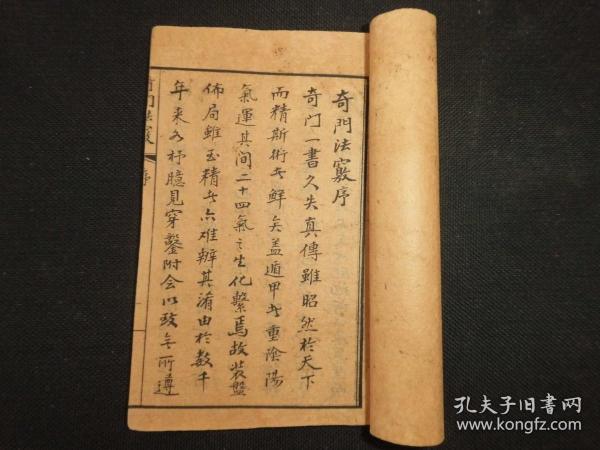 奇門法竅序
奇门一書久失真傳雖昭然於天下
而精斯術者鮮矣盖遁甲者重陰陽
氣運其間二十四氣之生化繫焉故裝盤
佈局雖至精者亦难辨其淆由於数千
年来各抒臆見穿鑿附会以致無所遵
奇门法竅
序
孔夫子旧书网
www.kongfz.com